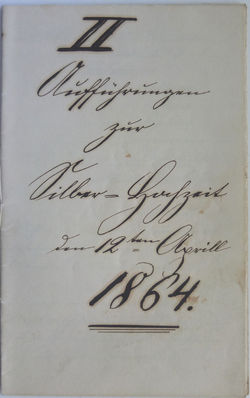 II
Aufführungen
zur
Silber-Hochzeit
den 12ten Aprill
1864.